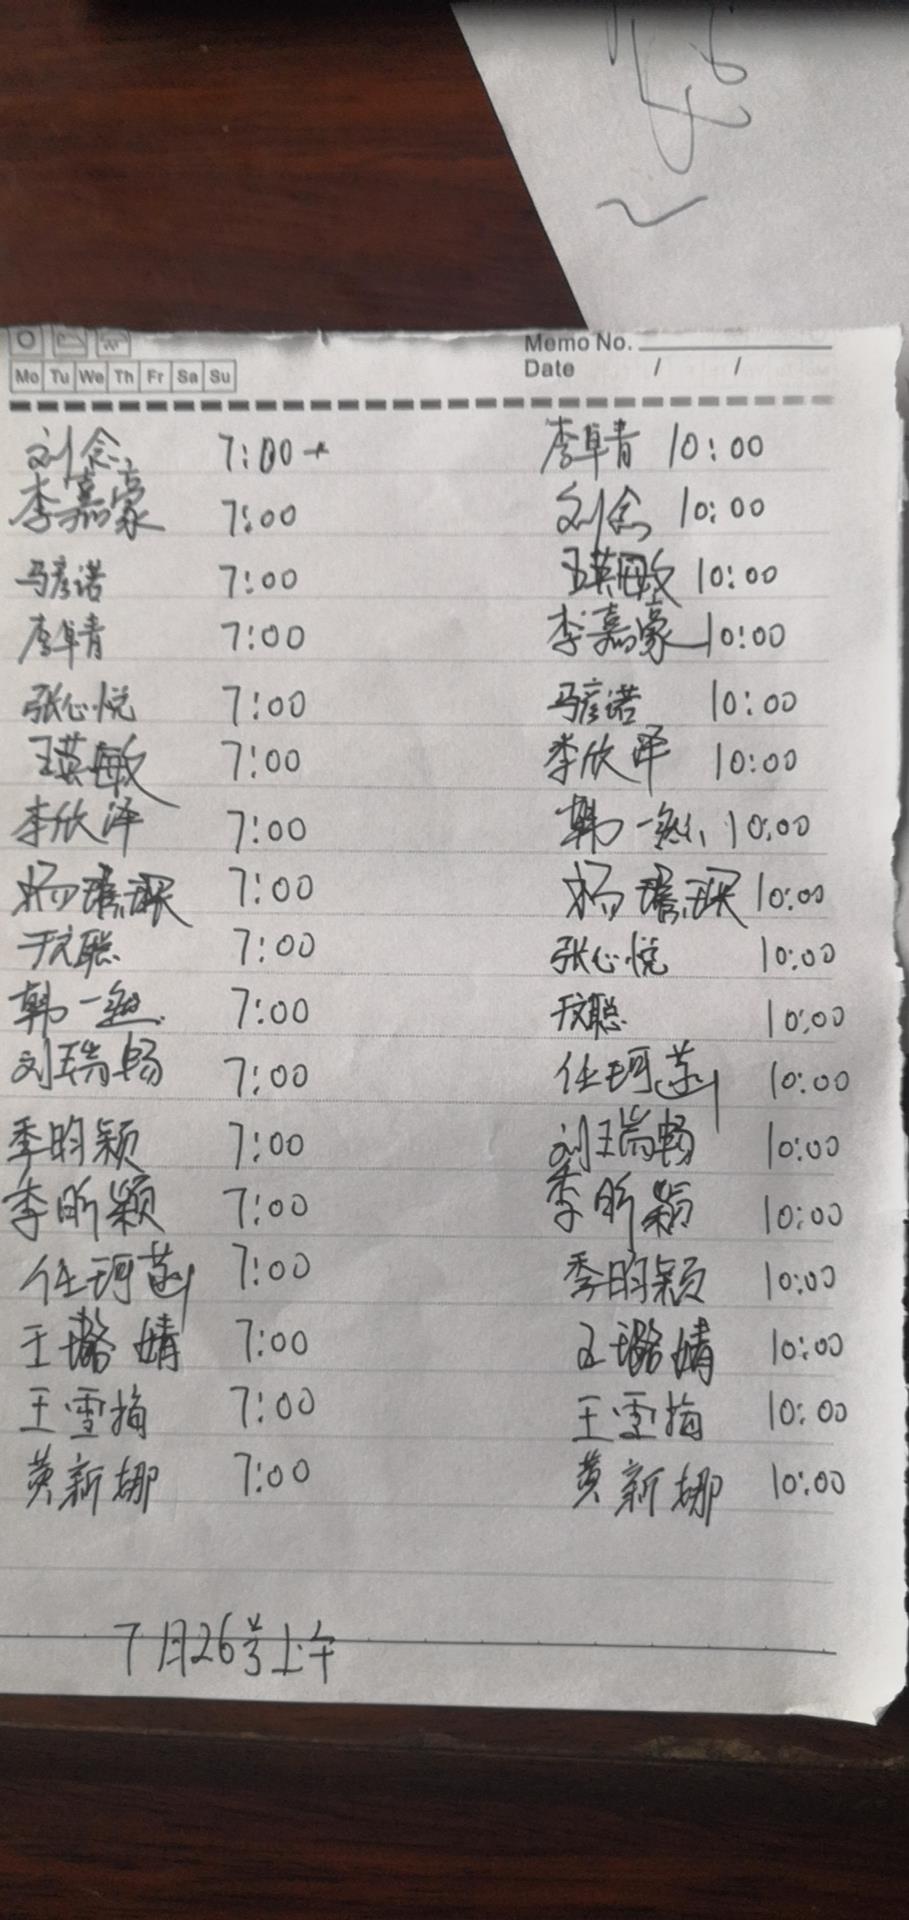 Memo No.
Mo Tu We Th Fr Sa Su
Date / /
刘念 7:00 李卓青 10:00
李嘉豪 7:00 刘念 10:00
马彦诺 7:00 王英敏 10:00
李卓青 7:00 李嘉豪 10:00
张心悦 7:00 马彦诺 10:00
王英敏 7:00 李欣泽 10:00
李欣泽 7:00 韩一 10:00
杨 7:00 杨 10:00
于文聪 7:00 张心悦 10:00
韩一 7:00 于文聪 10:00
刘瑞畅 7:00 任珂 10:00
季昀颖 7:00 刘瑞畅 10:00
李昕颖 7:00 李昕颖 10:00
任珂 7:00 季昀颖 10:00
王璐婧 7:00 王璐婧 10:00
王雪梅 7:00 王雪梅 10:00
黄新娜 7:00 黄新娜 10:00
7月26号上午